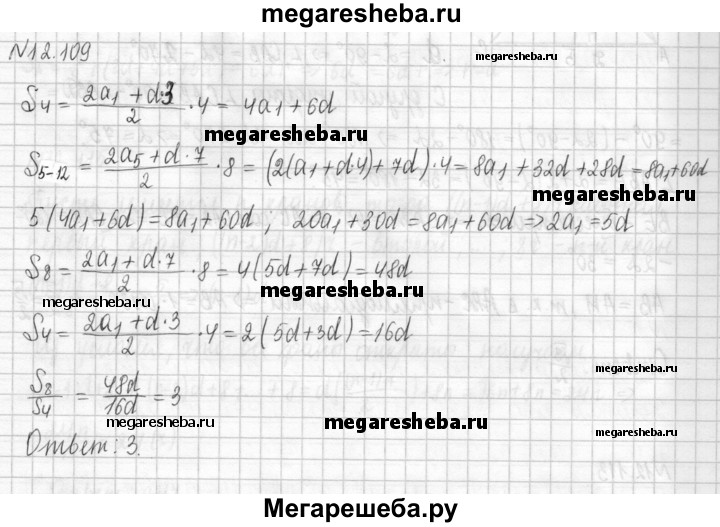 megaresheba.ru
N12.109
S4 = (2a1 + d·3)/2 · 4 = 4a1 + 6d
megaresheba.ru
S5-12 = (2a5 + d · 7)/2 · 8 = (2(a1 + d4) + 7d) · 4 = 8a1 + 32d + 28d = 8a1 + 60d
megaresheba.ru
megaresheba.ru
5(4a1 + 6d) = 8a1 + 60d ; 20a1 + 30d = 8a1 + 60d => 2a1 = 5d
S8 = (2a1 + d·7)/2 · 8 = 4(5d + 7d) = 48d
megaresheba.ru
megaresheba.ru
S4 = (2a1 + d·3)/2 · 4 = 2(5d + 3d) = 16d
megaresheba.ru
S8/S4 = 48d/16d = 3
megaresheba.ru
megaresheba.ru
Ответ: 3.
megaresheba.ru
Мегарешеба.ру